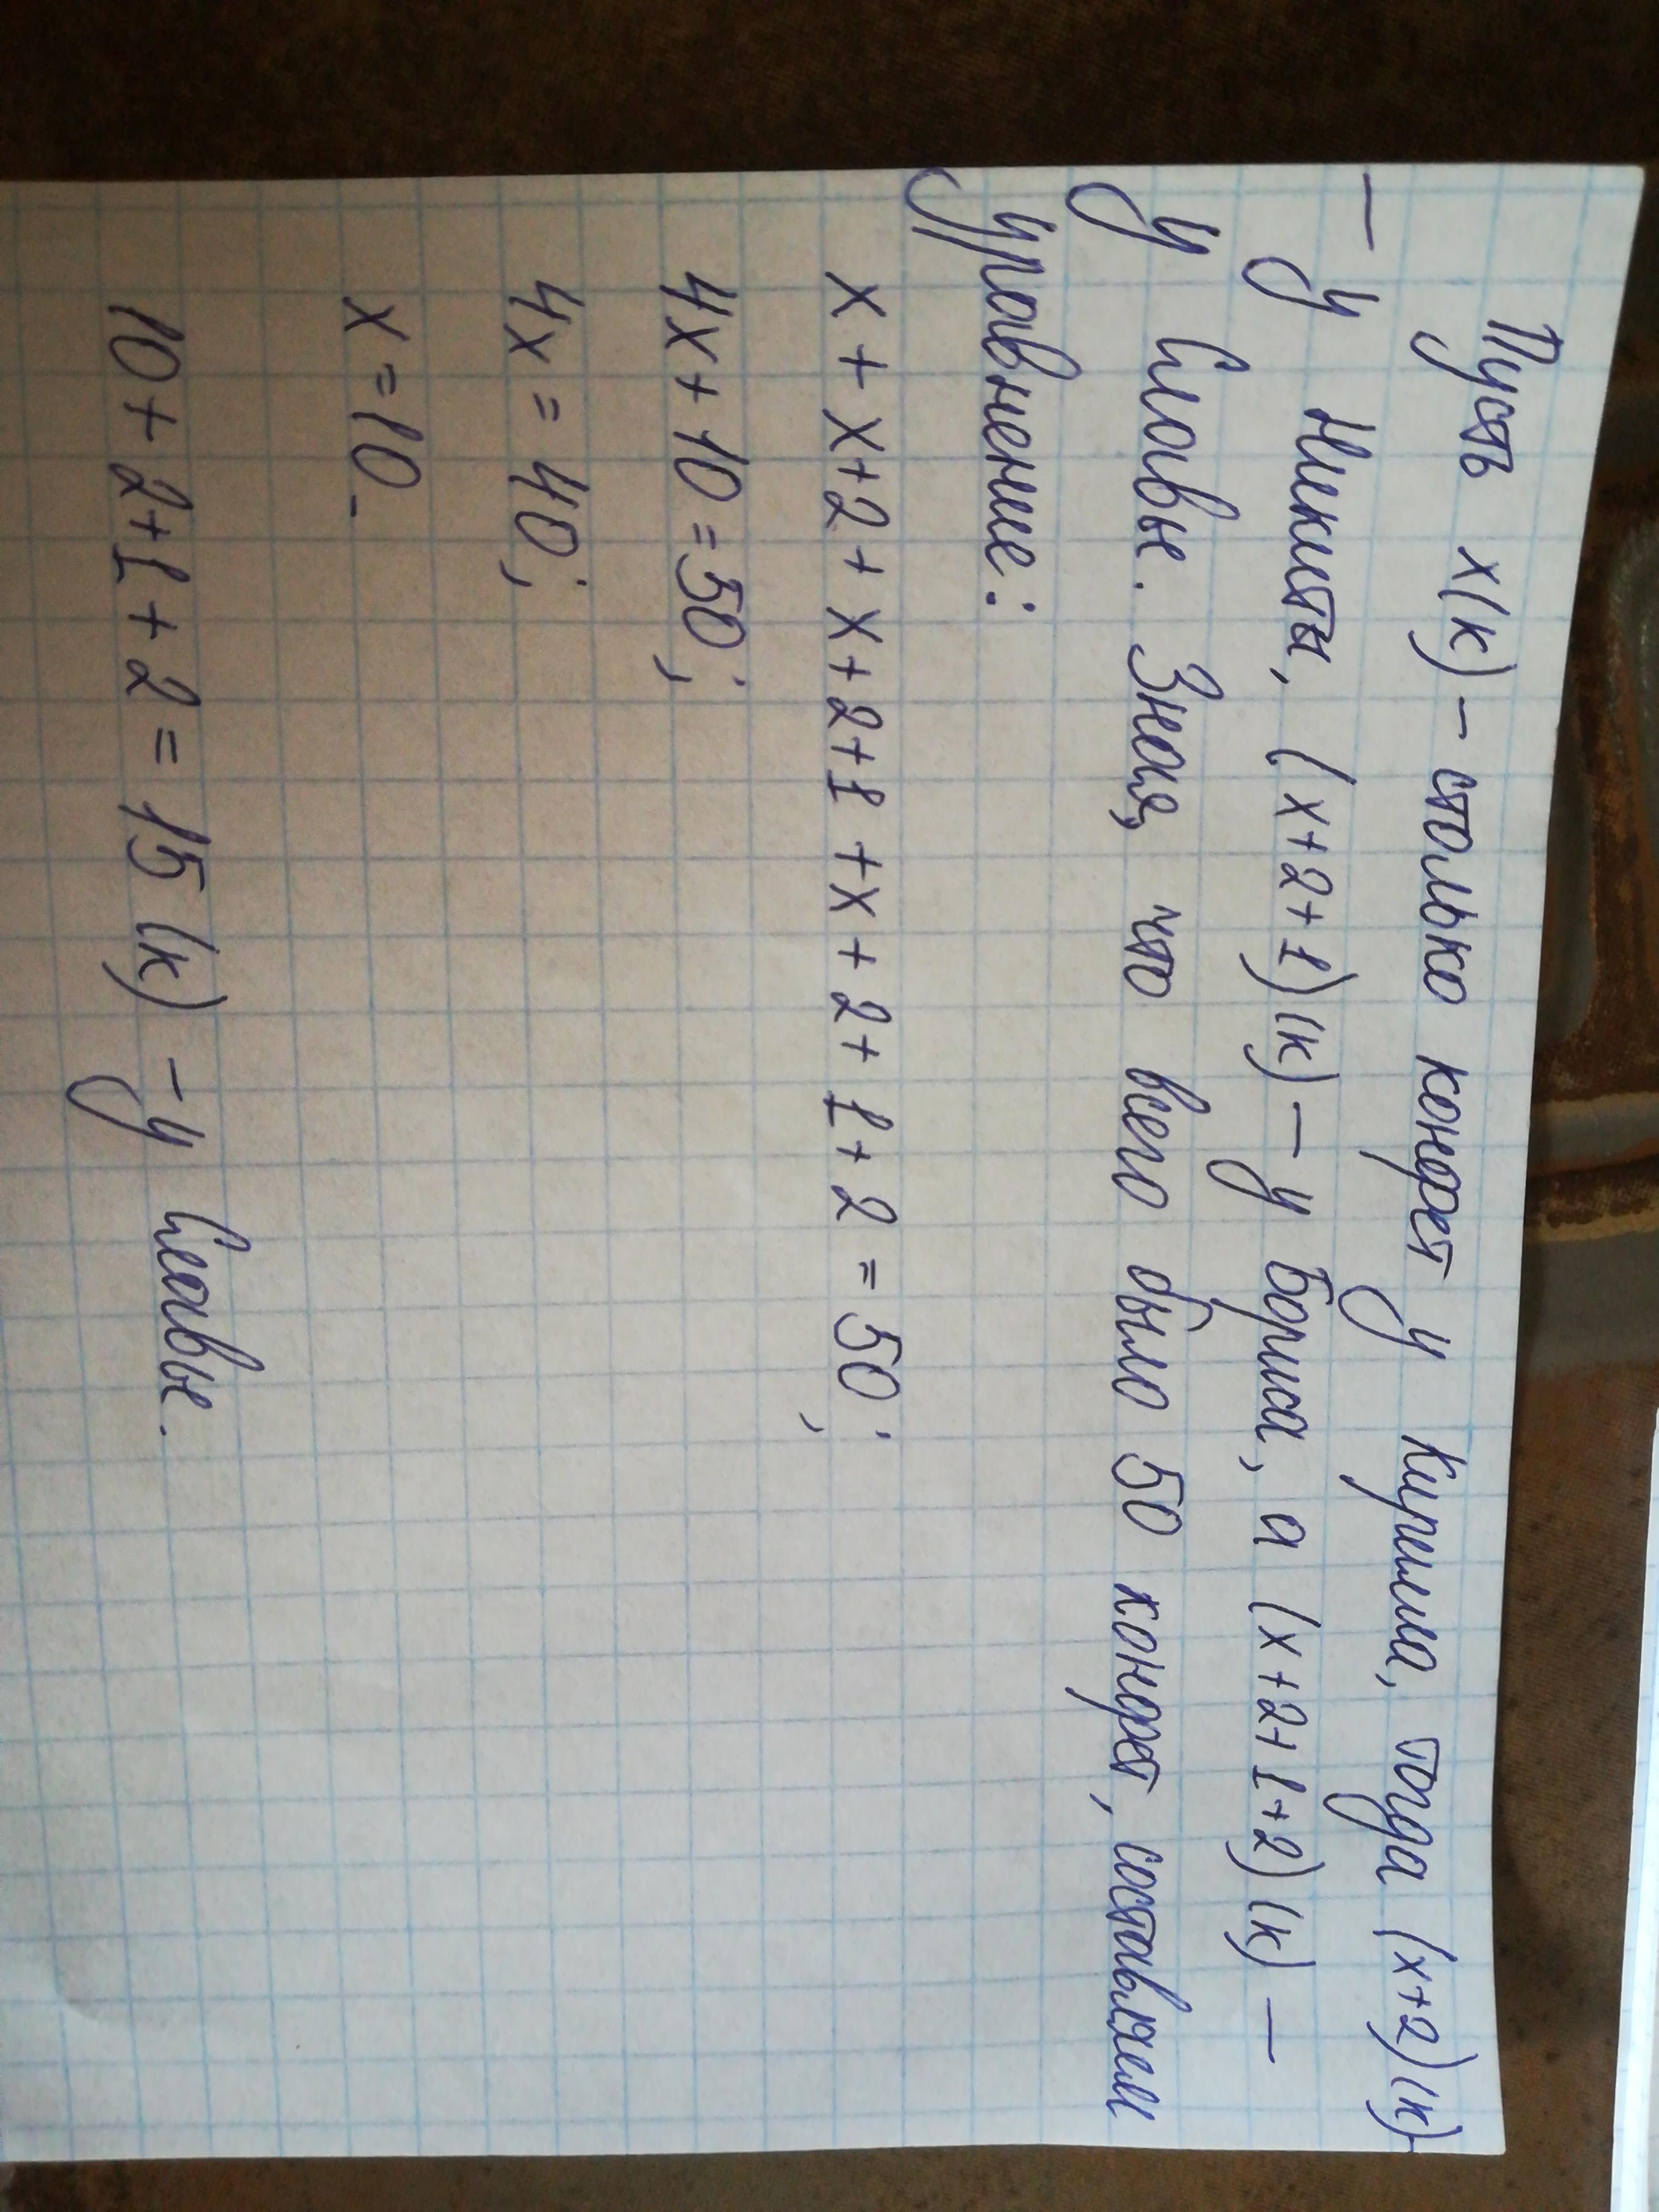 Пусть х(к) - столько конфет у Кирилла, тогда (х+2)(к)-
- у Никиты, (х+2+1)(к) - у Бориса, а (х+2+1+2)(к) -
у Славы. Зная, что всего было 50 конфет, составляем
уравнение:
х + х+2 + х+2+1 +х+2+1+2 = 50;
4х+10=50;
4х = 40;
х=10.
10+2+1+2=15(к) - у Славы.